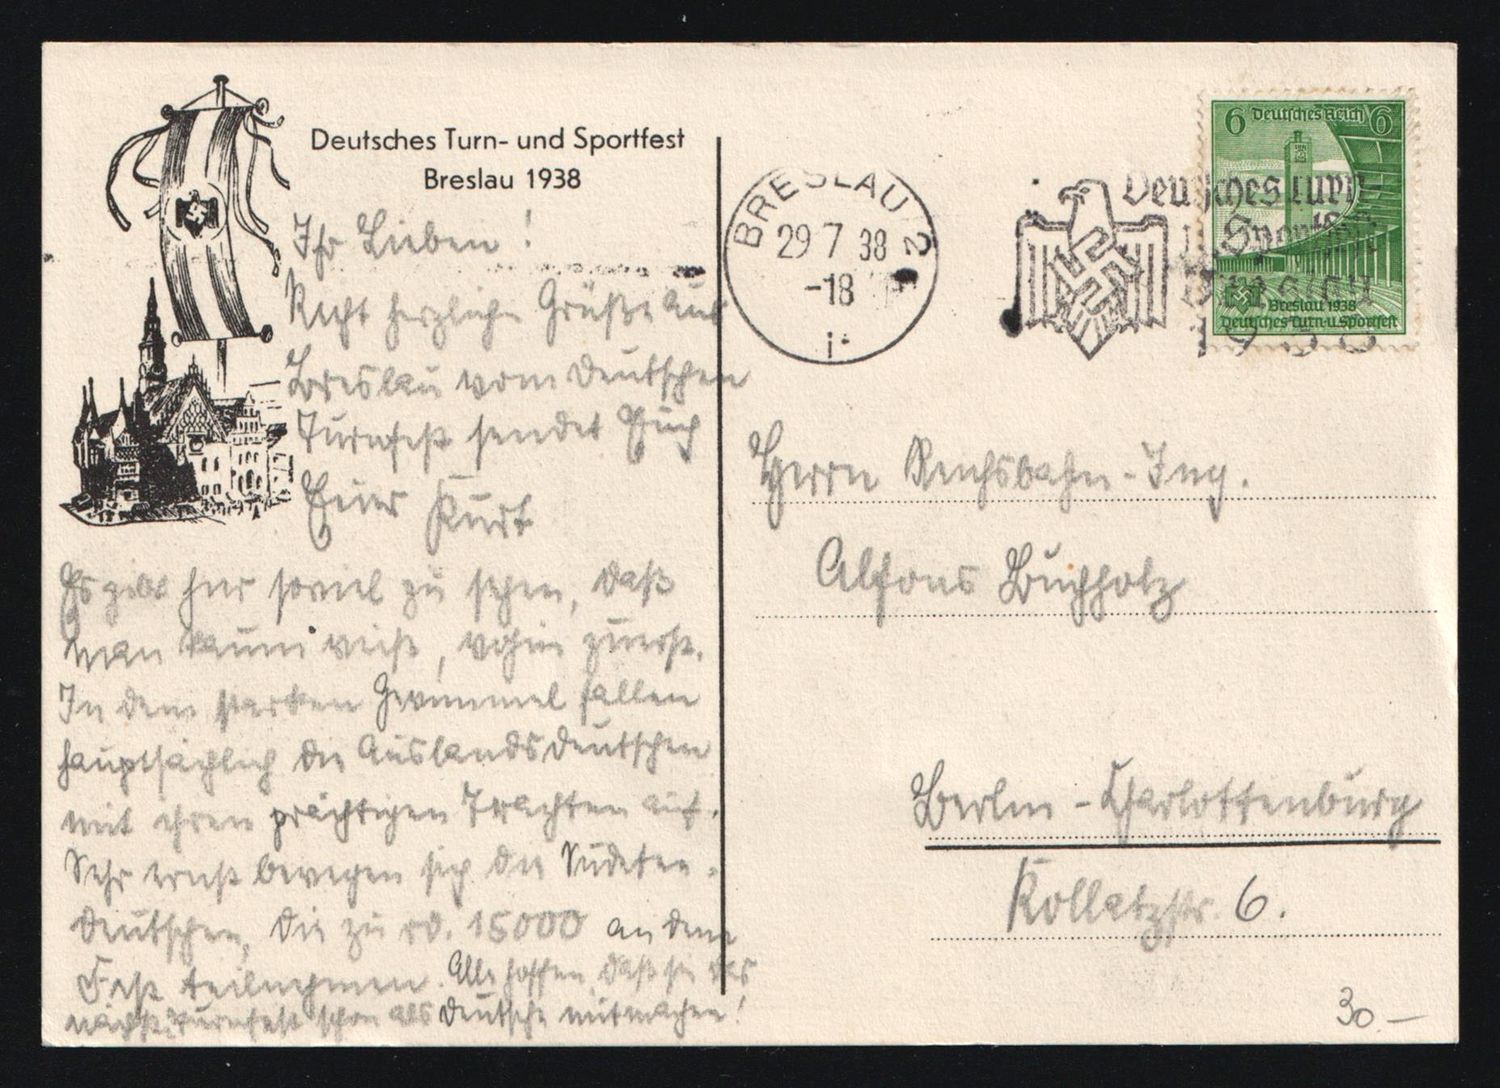 Deutsches Turn- und Sportfest
Breslau 1938
Ihr Lieben!
Recht herzliche Grüße aus
Breslau vom Deutschen
Turnfest sendet Euch
Euer Kurt
Es gibt hier soviel zu sehen, daß
man kaum weiß, wohin zuerst.
In dem starken Gewimmel fallen
hauptsächlich die Auslandsdeutschen
mit ihren prächtigen Trachten auf.
Sehr ernst bewegen sich die Sudeten-
deutschen, die zu rd. 15000 an dem
Fest teilnehmen. Alle hoffen, daß sie das
nächste Turnfest schon als Deutsche mitmachen!
BRESLAU 2
29 7 38
-18
i
Deutsches Turn-
u. Sportfest
Breslau
1938
6 Deutsches Reich 6
Breslau 1938
Deutsches Turn-u. Sportfest
Herrn Reichsbahn-Ing.
Alfons Buchholz
Berlin-Charlottenburg
Kollatzstr. 6.
30.—